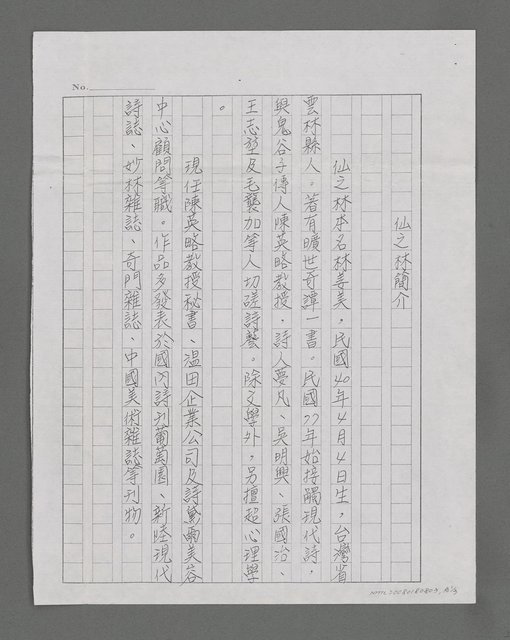 No.
仙之林簡介
仙之林本名林姜美，民國40年4月4日生，台灣省
雲林縣人。著有曠世奇譚一書。民國77年始接觸現代詩，
與鬼谷子傳人陳英略教授，詩人夢凡、吳明興、張國治、
王志堃及毛襲加等人切磋詩藝。除文學外，另擅超心理學
。
現任陳英略教授秘書、溫田企業公司及詩黛爾美容
中心顧問等職。作品多發表於國內詩刊葡萄園、新陸現代
詩誌、妙林雜誌、奇門雜誌、中國美術雜誌等刊物。